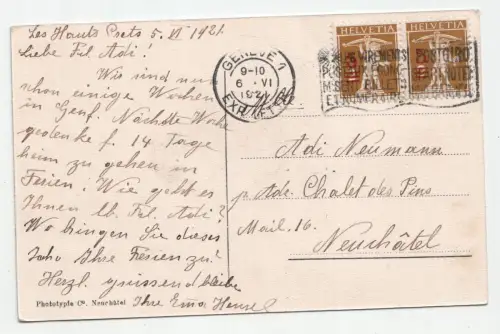 Les Hauts Prets 5. VI 1921.
Liebe Frl. Adi!
Wir sind nun
schon einige Wochen
in Genf. Nächste Woche
gedenke f. 14 Tage
heim zu gehen in
Ferien! Wie geht es
Ihnen lb. Frl. Adi?
Wo bringen Sie dieses
Jahr Ihre Ferien zu?
Herzl. grüssend bleibe
Ihre Ema Hensel
Phototypie Co. Neuchâtel
HELVETIA
HELVETIA
GENÈVE 1
9-10
6. VI
1921
EXP. LET
Adi Neumann
p. Adr. Chalet des Pins
Mail. 16.
Neuchâtel